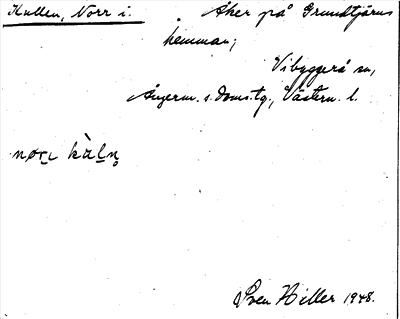 Kullen, Norr i. Åker på Grundtjärns
hemman;
Vibyggerå sn,
Ångerm. s. doms.tg., Västern. l.
Sven Hiller 1948.